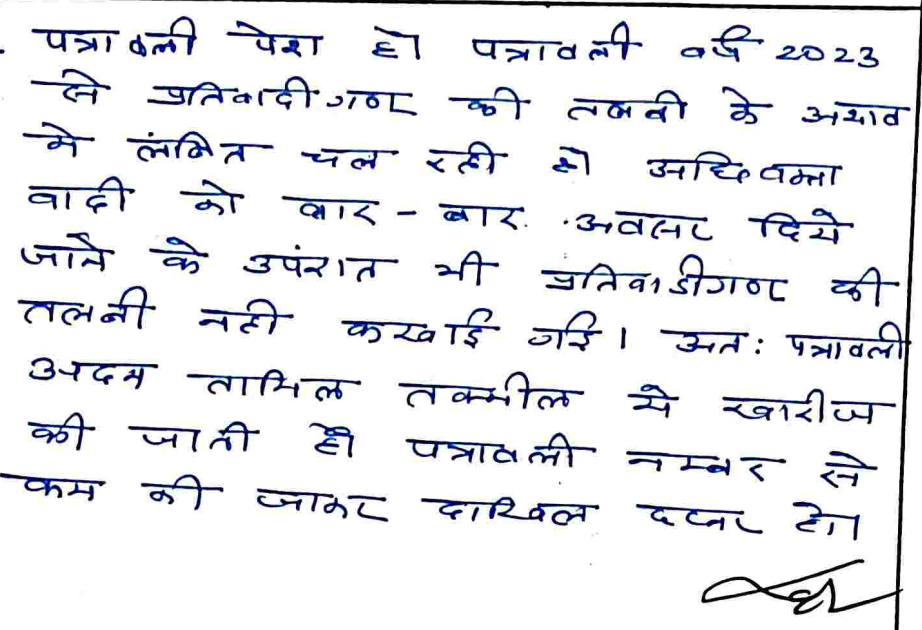 पत्रावली पेश हो पत्रावली वर्ष 2023
से प्रतिवादीगण की तलबी के अभाव
मे लंबित चल रही है। अधिवक्ता
वादी को बार - बार अवसर दिये
जाने के उपंरात भी प्रतिवादीगण की
तलबी नही करवाई गई। अत: पत्रावली
अदम तामिल तकमील मे खारीज
की जाती है। पत्रावली नम्बर से
कम की जाकर दाखिल दफ्तर हो।